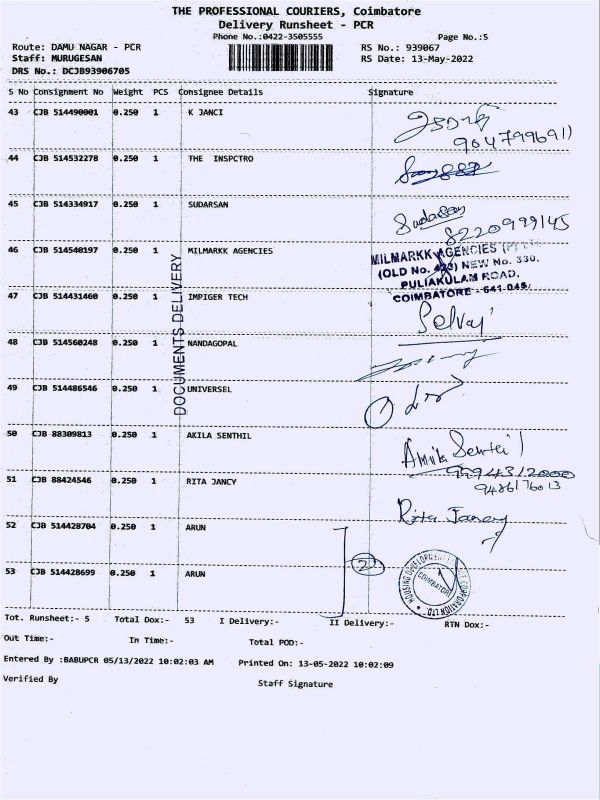 THE PROFESSIONAL COURIERS, Coimbatore
Delivery Runsheet - PCR
Phone No.:0422-3505555 Page No.:5
Route: DAMU NAGAR - PCR RS No.: 939067
Staff: MURUGESAN RS Date: 13-May-2022
DRS No.: DCJB93906705
S No Consignment No Weight PCS Consignee Details Signature
43 CJB 514490001 0.250 1 K JANCI
9047999691)
44 CJB 514532278 0.250 1 THE INSPCTRO
45 CJB 514334917 0.250 1 SUDARSAN Sudarsan
8220999145
46 CJB 514540197 0.250 1 MILMARKK AGENCIES
MILMARKK AGENCIES
(OLD No. NEW No. 330,
PULIAKULAM ROAD,
COIMBATORE - 641 045.
DOCUMENTS DELIVERY
47 CJB 514431460 0.250 1 IMPIGER TECH
48 CJB 514560248 0.250 1 NANDAGOPAL
49 CJB 514486546 0.250 1 UNIVERSEL
50 CJB 88309813 0.250 1 AKILA SENTHIL
51 CJB 88424546 0.250 1 RITA JANCY
9486176013
Rita Jancy
52 CJB 514428704 0.250 1 ARUN
2
53 CJB 514428699 0.250 1 ARUN
HOUSING DEVELOPMENT CORPORATION LTD
COIMBATORE
Tot. Runsheet:- 5 Total Dox:- 53 I Delivery:- II Delivery:- RTN Dox:-
Out Time:- In Time:- Total POD:-
Entered By :BABUPCR 05/13/2022 10:02:03 AM Printed On: 13-05-2022 10:02:09
Verified By Staff Signature